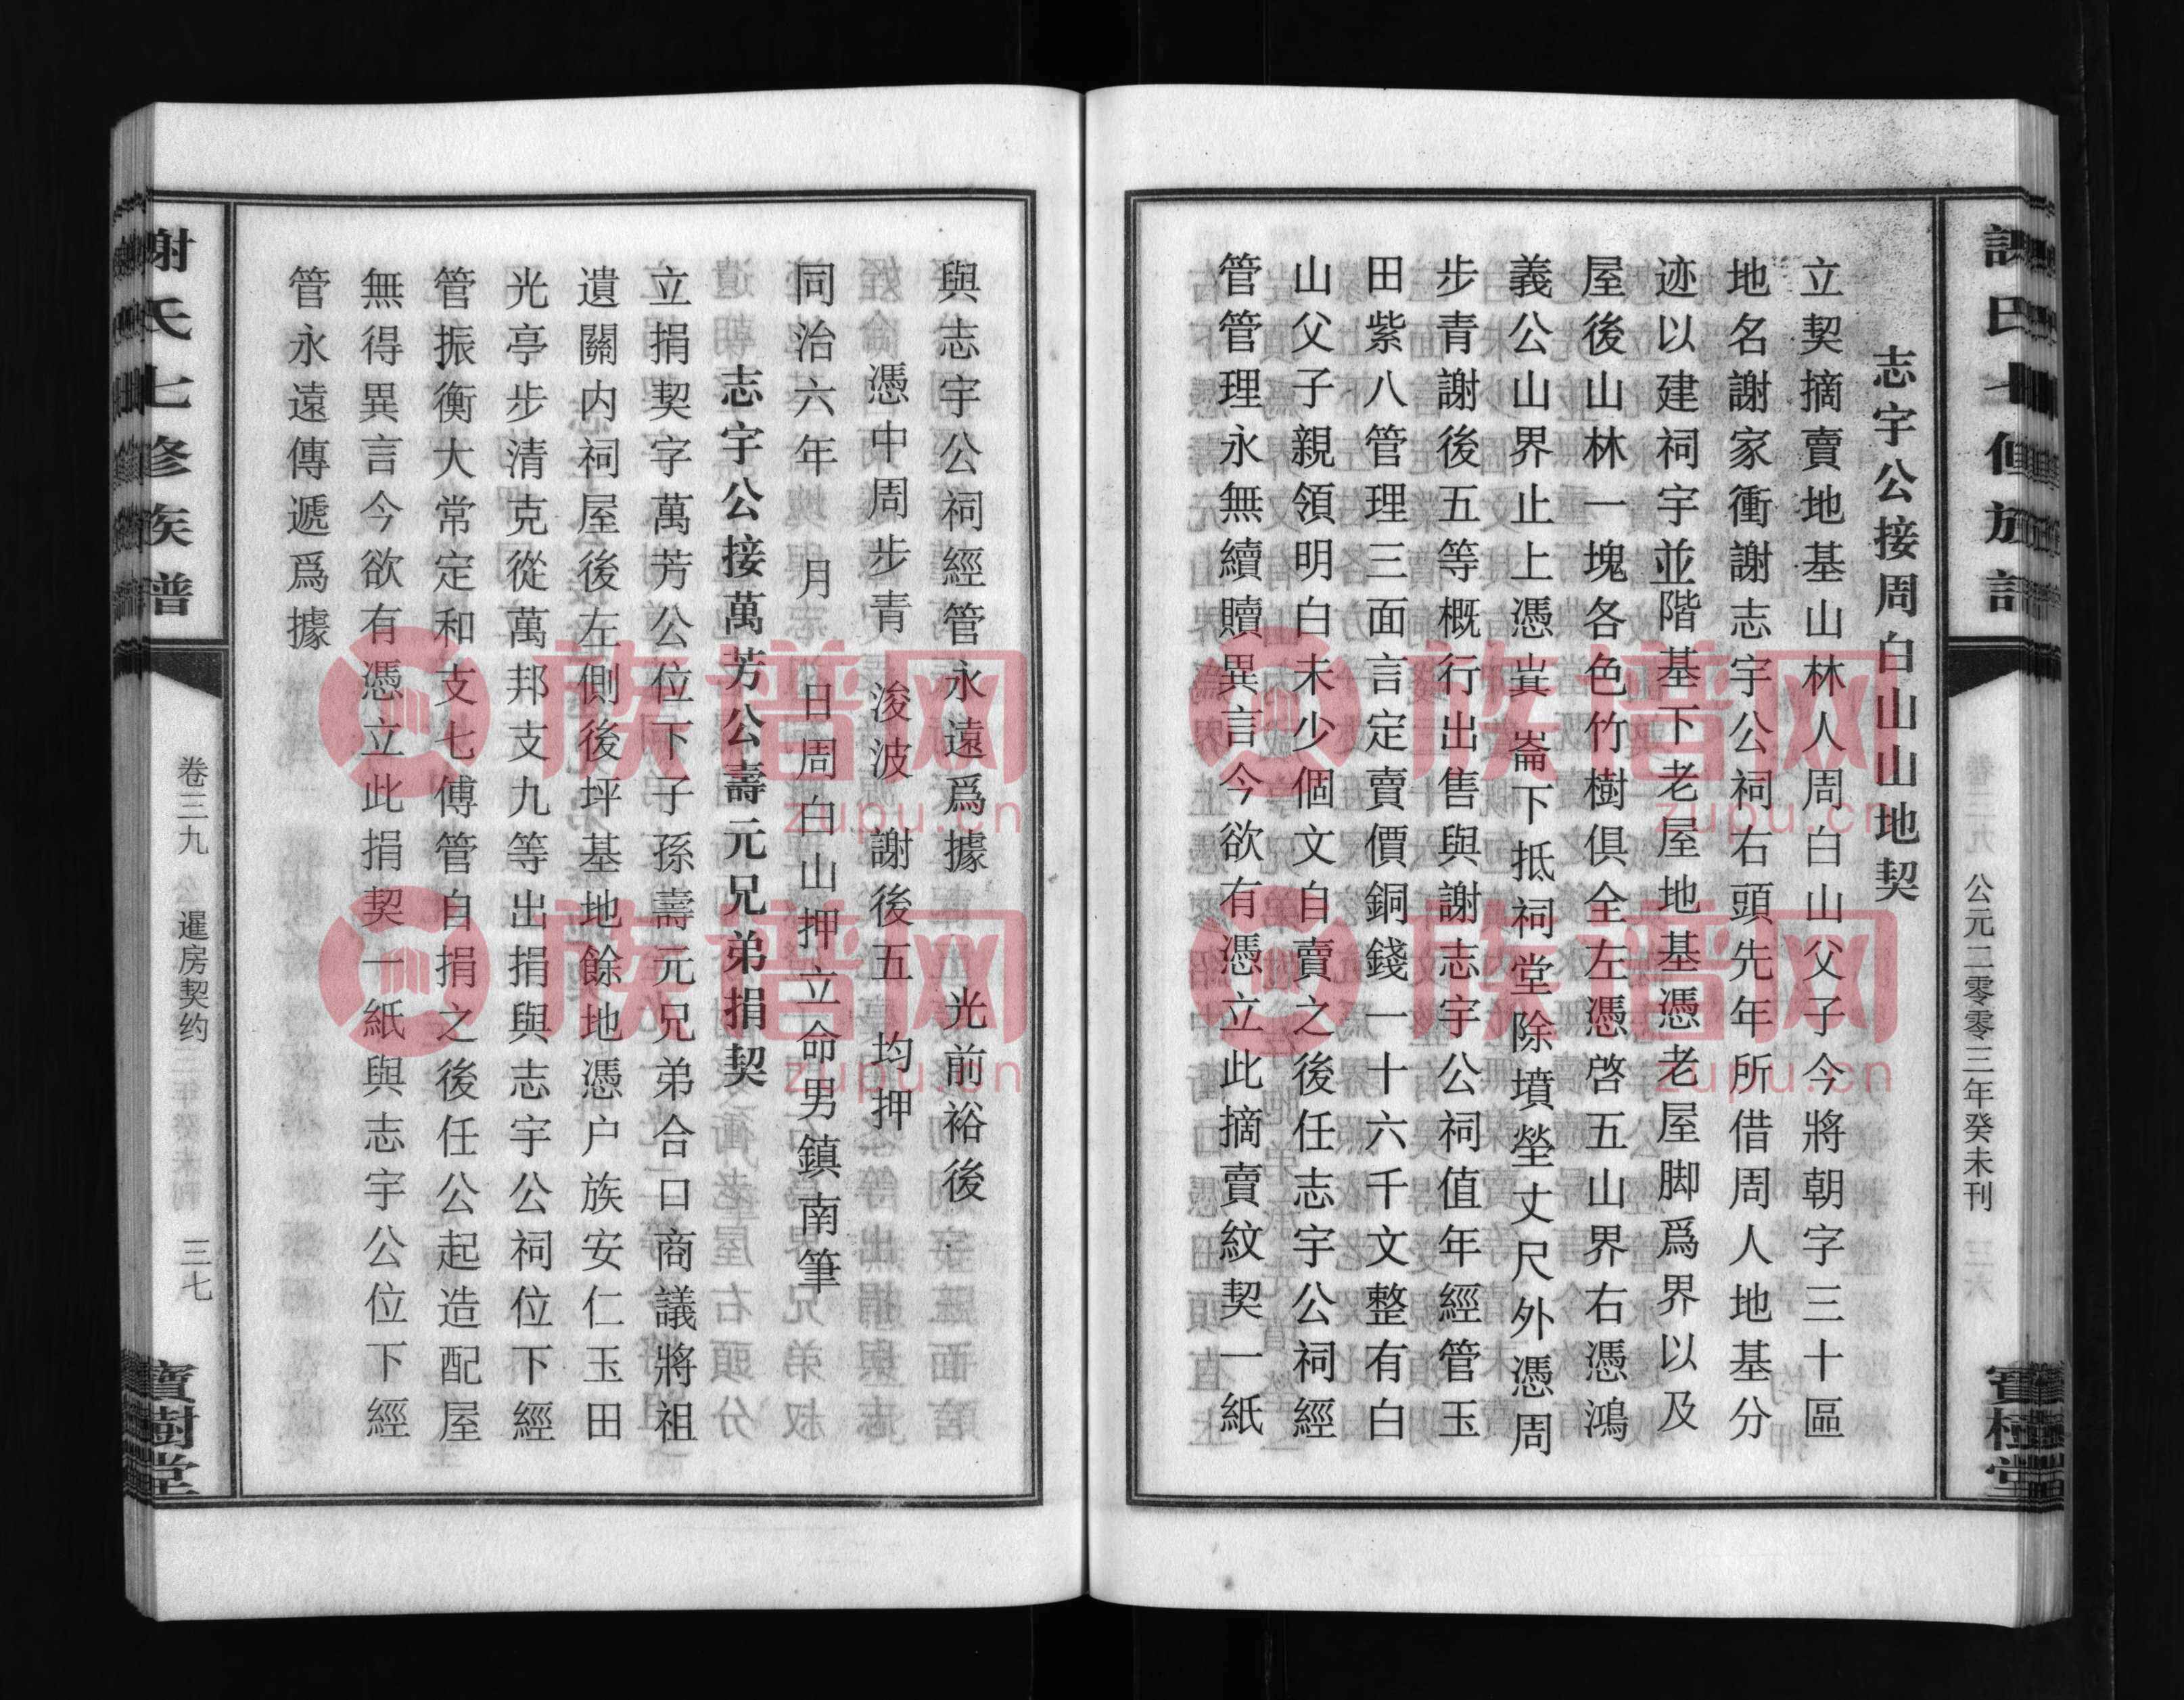 志宇公接周白山山地契
立契摘賣地基山林人周白山父子今將朝字三十區
地名謝家衝謝志宇公祠右頭先年所借周人地基分
迹以建祠宇並階基下老屋地基憑老屋脚爲界以及
屋後山林一塊各色竹樹俱全左憑啓五山界右憑鴻
義公山界止上憑豈崙下抵祠堂除墳塋丈尺外憑周
步青謝後五等概行出售與謝志宇公祠值年經管玉
田紫八管理三面言定賣價銅錢一十六千文整有白
山父子親領明白未少個文自賣之後任志宇公祠經
管管理永無續贖異言今欲有憑立此摘賣紋契一紙
公元二零零三年癸未刊
寶樹堂
與志宇公祠經管永遠爲據　光前裕後
憑中周步青　浚波　謝後五　均押
同治六年　月　日周白山押立命男鎮南筆
志宇公接萬芳公壽元兄弟捐契
立捐契字萬芳公位下子孫壽元兄弟合口商議將祖
遺關内祠屋後左側後坪基地餘地憑户族安仁玉田
光亭步清克從萬邦支九等出捐與志宇公祠位下經
管振衡大常定和支七傅管自捐之後任公起造配屋
無得異言今欲有憑立此捐契一紙與志宇公位下經
管永遠傳遞爲據
謝氏七修族譜
卷三九
暹房契约
三七
寶樹堂
族谱网
zupu.cn
族谱网
zupu.cn
族谱网
zupu.cn
族谱网
zupu.cn